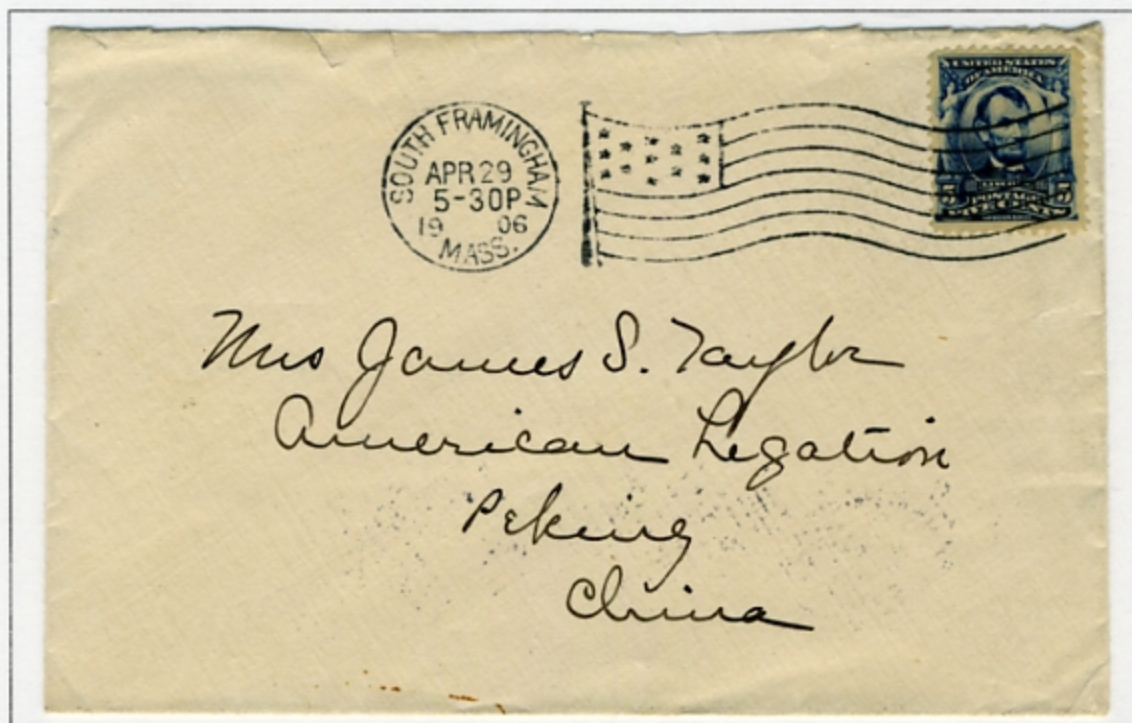 SOUTH FRAMINGHAM
APR 29
5-30P
19 06
MASS.
UNITED STATES
OF AMERICA
5 POSTAGE 5
Mrs James S. Taylor
American Legation
Peking
China